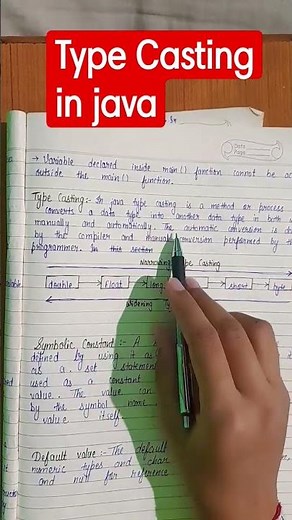 Type Casting
in java
Date
Page
→ Variable declared inside main() function cannot be ac
outside the main() function.
Type Casting:- In java type casting is a method or process
converts a data type into another data type in both w
manually and automatically. The automatic conversion is do
by the compiler and manual conversion performed by th
programmer. In this section
Narrowing Type Casting
double
float
long
short
byte
Widening
Symbolic Constant:- A
defined by using it as
as a set statement
used as a constant
value. The value can
by the symbol name
value itself
Default value:- The default
numeric types and char
and null for reference